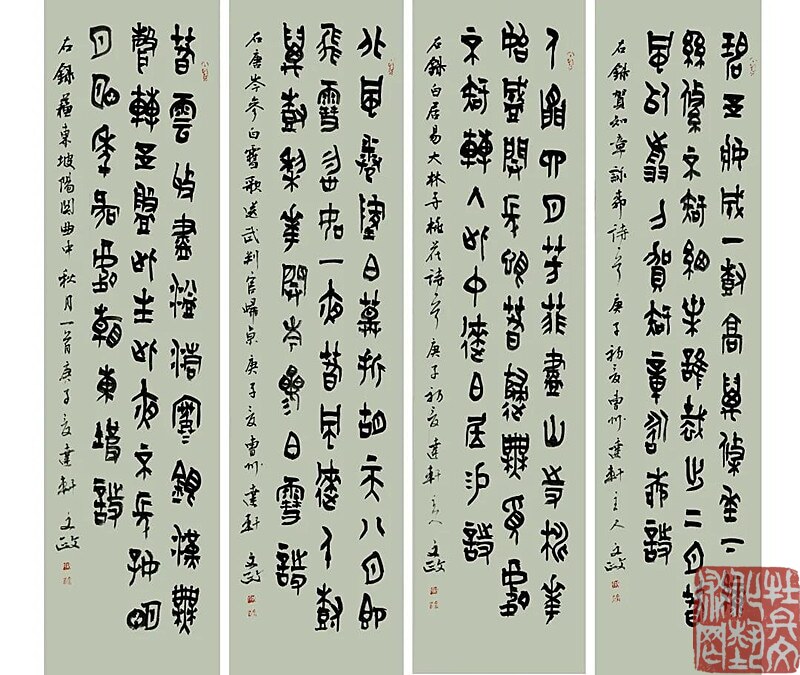 碧玉妝成一樹高萬條垂下綠
絲絛不知細葉誰裁出二月春
風似剪刀賀知章詠柳詩
右錄賀知章詠柳詩一首 庚子初夏曹州達軒主人文政
人間四月芳菲盡山寺桃華
始盛開長恨春歸無覓處
不知轉入此中來白居易詩
右錄白居易大林寺桃花詩一首 庚子初夏達軒主人文政
北風捲地白草折胡天八月即
飛雪忽如一夜春風來千樹
萬樹梨華開岑參白雪詩
右唐岑參白雪歌送武判官歸京庚子夏曹州達軒文政
暮雲收盡溢清寒銀漢無
聲轉玉盤此生此夜不長好明
月明年何處看蘇東坡詩
右錄蘇東坡陽關曲中秋月一首庚子夏達軒文政